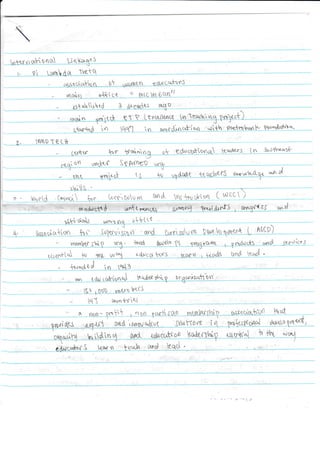 International Linkages
1. Pi Lambda Theta
- association of women educators
- main office = michigan
- established 3 decades ago
- main project ETP (Excellence in Teaching project)
started in 1997 in coordination with metrobank foundation.
2. INNOTECH
center for training of educational leaders in Southeast
region under SEAMEO org.
- one project is to update teachers knowledge and
skills.
3. World Council for Curriculum and Instruction (WCCI)
- conducted conferences among presidents, congress and
officials among office
4. Association for Supervision and Curriculum Development (ASCD)
- membership org. that develops program, products and services
essential to the way educators learn, teach and lead.
- founded in 1943
- an educational leadership organization.
- members
- countries
- a non-profit, non partisan membership association that
provides expert and innovative solutions in professional development,
capacity building and education leadership essential to the way
educators learn teach and lead.